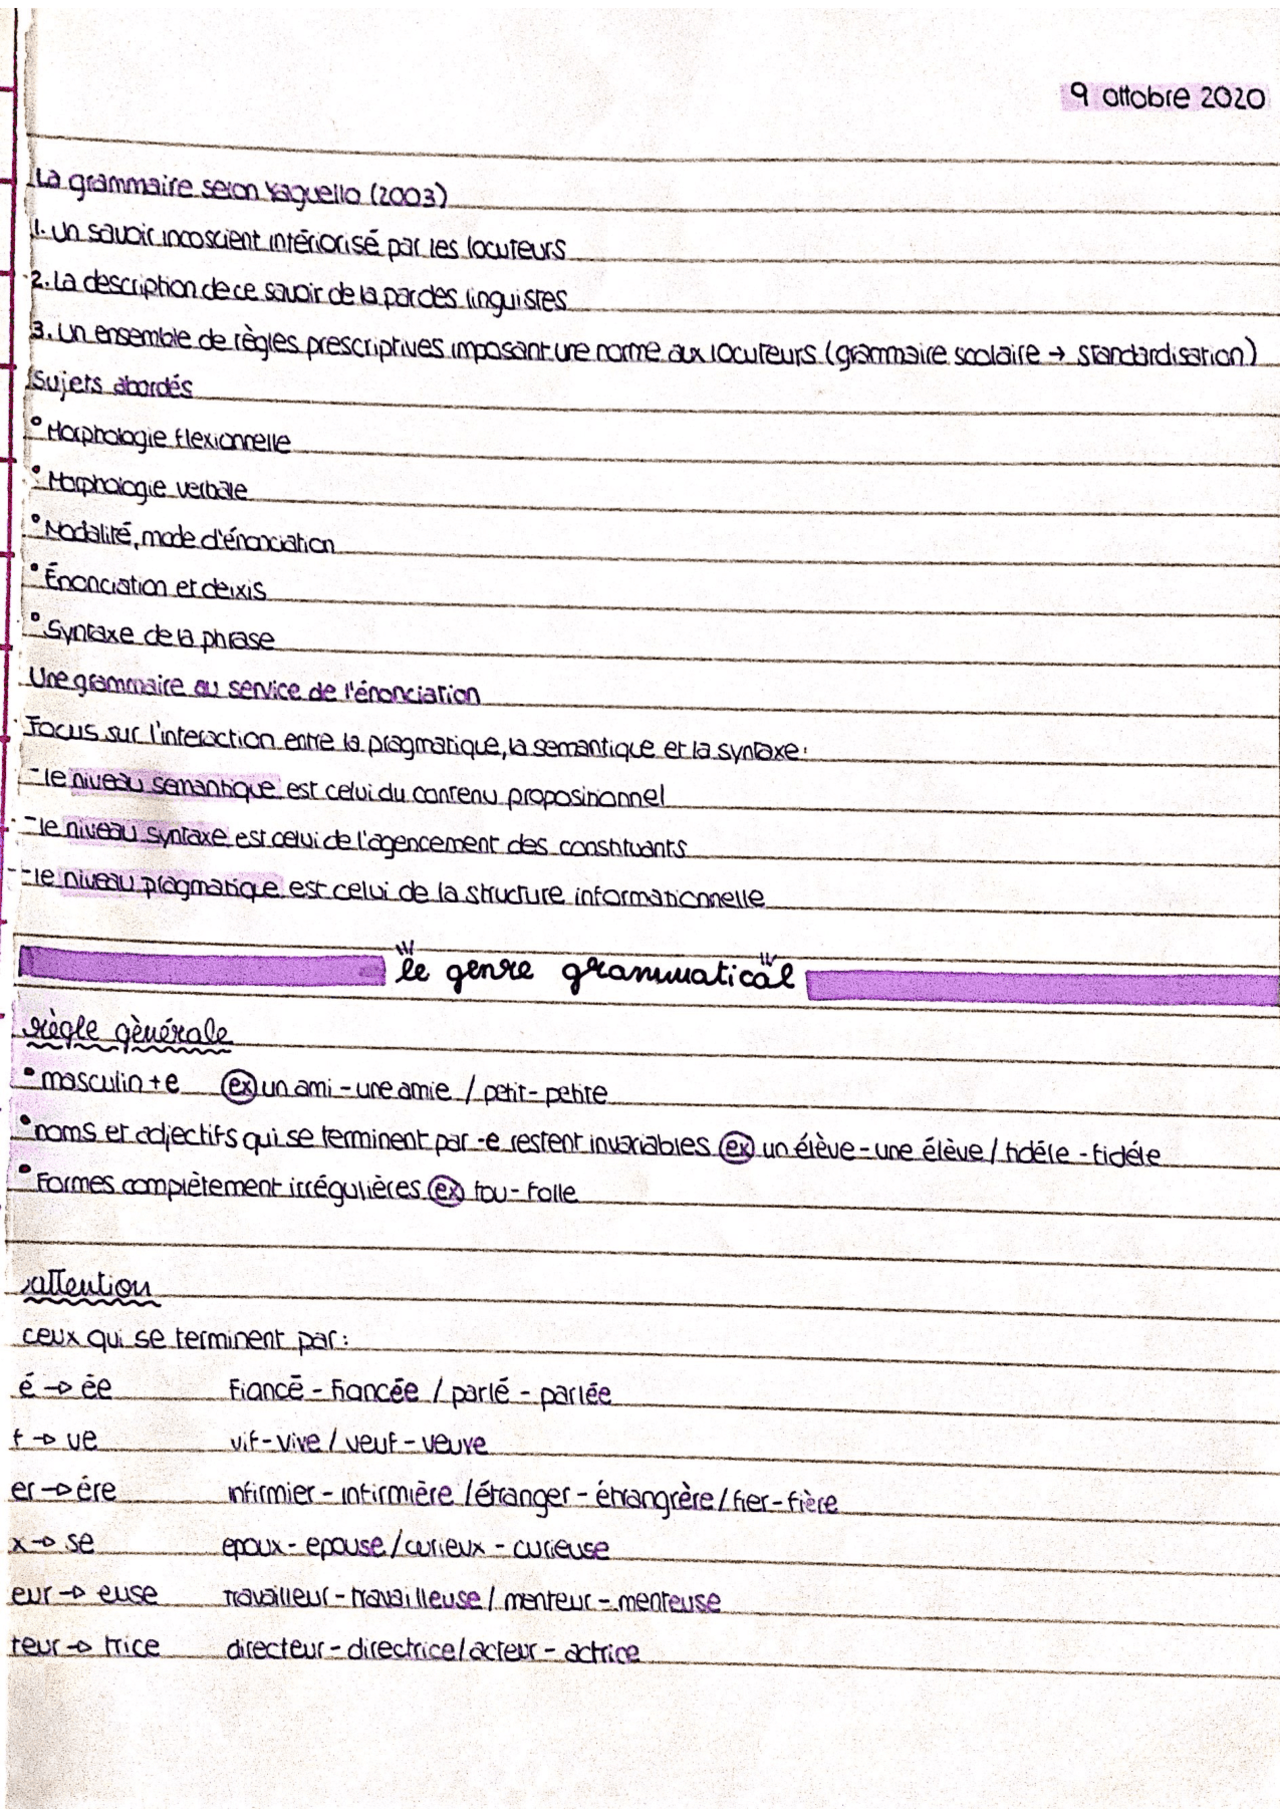 9 ottobre 2020
La grammaire selon Yaguello (2003)
1. un savoir incoscient intériorisé par les locuteurs
2. La description de ce savoir de la par des linguistes
3. un ensemble de règles prescriptives imposant une norme aux locuteurs (grammaire scolaire → standardisation)
Sujets abordés
° Morphologie flexionnelle
° Morphologie verbale
° Modalité, mode d'énonciation
° Énonciation et deixis
° Syntaxe de la phrase
Une grammaire au service de l'énonciation
Focus sur l'interaction entre la pragmatique, la semantique et la syntaxe:
- le niveau semantique est celui du contenu propositionnel
- le niveau syntaxe est celui de l'agencement des constituants
- le niveau pragmatique est celui de la structure informationnelle
le genre grammatical
règle gènérale
• masculin + e ex un ami - une amie / petit - petite
• noms et adjectifs qui se terminent par -e restent invariables ex un élève - une élève / fidéle - fidéle
• Formes complètement irrégulières ex fou - folle
attention
ceux qui se terminent par:
é → ée fiancé - fiancée / parlé - parlée
f → ve vif - vive / veuf - veuve
er → ére infirmier - infirmière / étranger - étrangrère / fier - fière
x → se epoux - epouse / curieux - curieuse
eur → euse travailleur - travailleuse / menteur - menteuse
teur → trice directeur - directrice / acteur - actrice